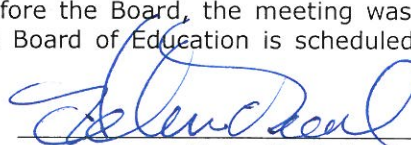 fore the Board, the meeting was
Board of Education is scheduled